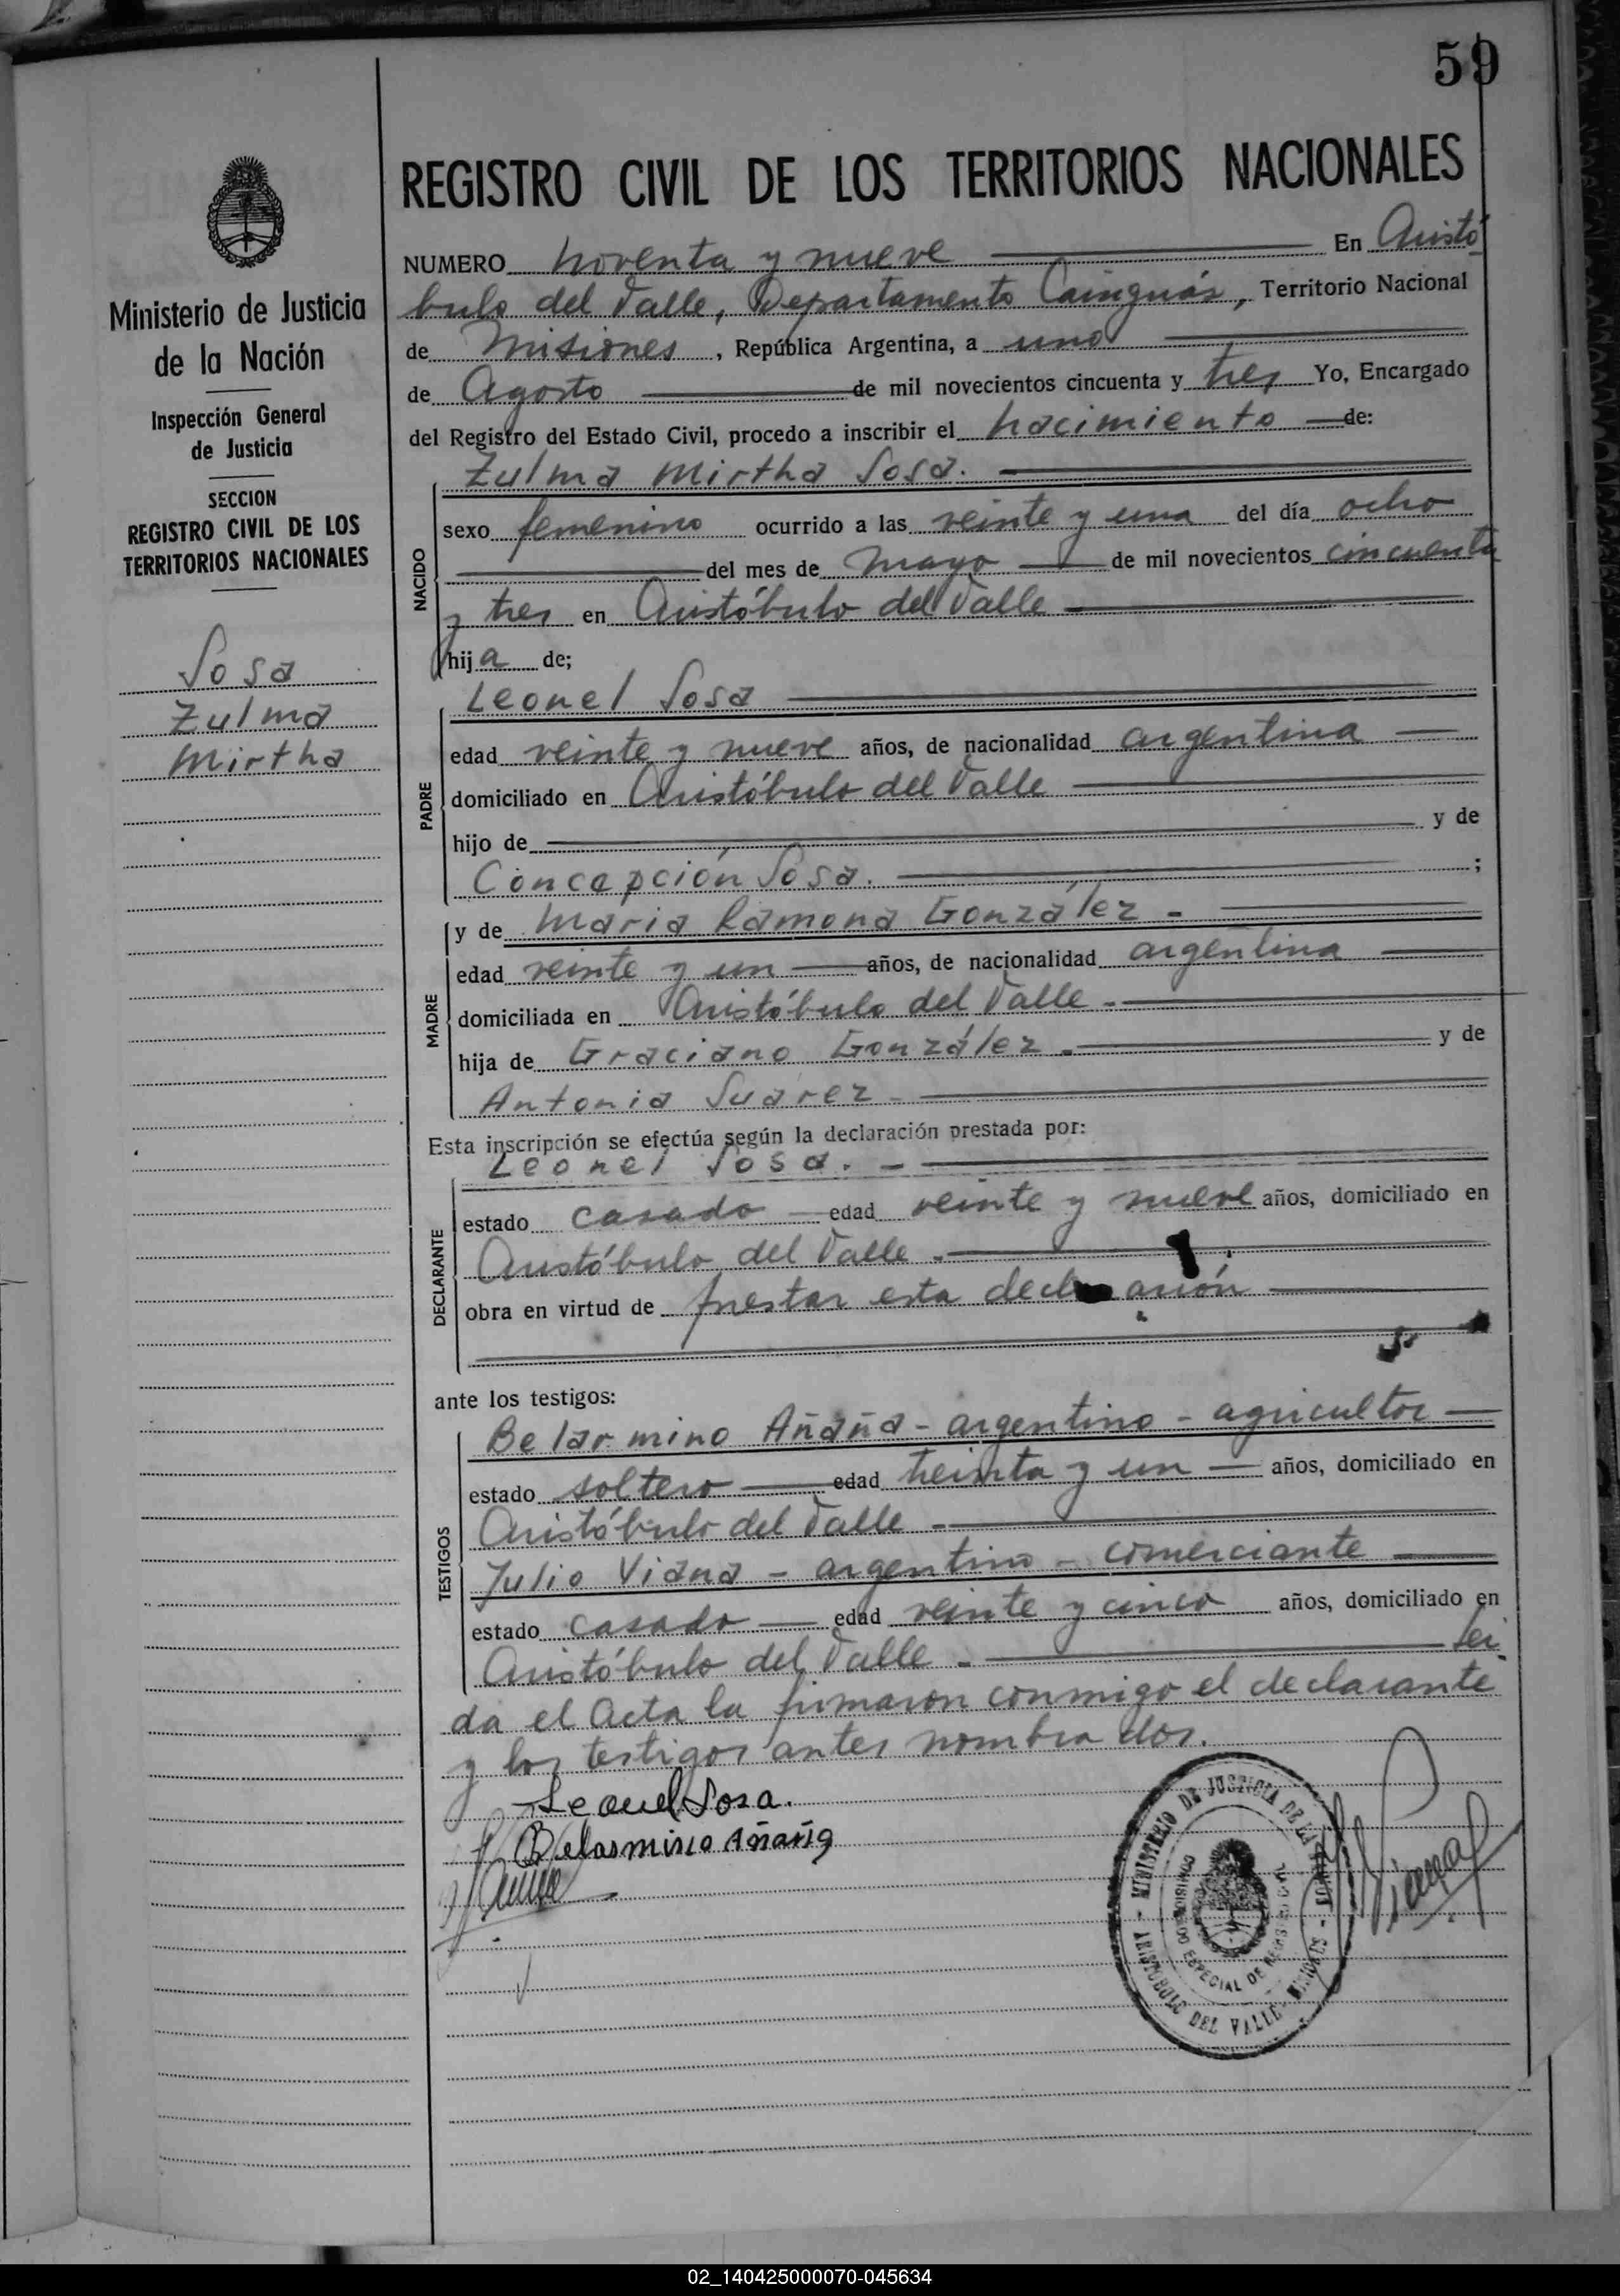 59
REGISTRO CIVIL DE LOS TERRITORIOS NACIONALES
Ministerio de Justicia
de la Nación
Inspección General
de Justicia
SECCION
REGISTRO CIVIL DE LOS
TERRITORIOS NACIONALES
Sosa
Zulma
Mirtha
NUMERO noventa y nueve En Aristó
bulo del Valle, Departamento Cainguás, Territorio Nacional
de Misiones, República Argentina, a uno
de Agosto de mil novecientos cincuenta y tres Yo, Encargado
del Registro del Estado Civil, procedo a inscribir el nacimiento de:
NACIDO
Zulma Mirtha Sosa.
sexo femenino ocurrido a las veinte y una del día ocho
del mes de mayo de mil novecientos cincuenta
y tres en Aristóbulo del Valle
hija de;
PADRE
Leonel Sosa
edad veinte y nueve años, de nacionalidad argentina
domiciliado en Aristóbulo del Valle
hijo de y de
Concepción Sosa. ;
MADRE
y de Maria Ramona González -
edad veinte y un años, de nacionalidad argentina
domiciliada en Aristóbulo del Valle -
hija de Graciano González - y de
Antonia Suárez -
Esta inscripción se efectúa según la declaración prestada por:
DECLARANTE
Leonel Sosa. -
estado casado edad veinte y nueve años, domiciliado en
Aristóbulo del Valle -
obra en virtud de prestar esta declaración
ante los testigos:
TESTIGOS
Belarmino Añaña - argentino - agricultor
estado soltero edad treinta y un años, domiciliado en
Aristóbulo del Valle -
Julio Viana - argentino - comerciante
estado casado edad veinte y cinco años, domiciliado en
Aristóbulo del Valle - Lei
da el Acta la firmaron conmigo el declarante
y los testigos antes nombrados.
Leonel Sosa.
Belarmino Añaña
MINISTERIO DE JUSTICIA DE LA NACION
ARISTOBULO DEL VALLE - MISIONES
ESPECIAL DE REGISTRO CIVIL
02_140425000070-045634